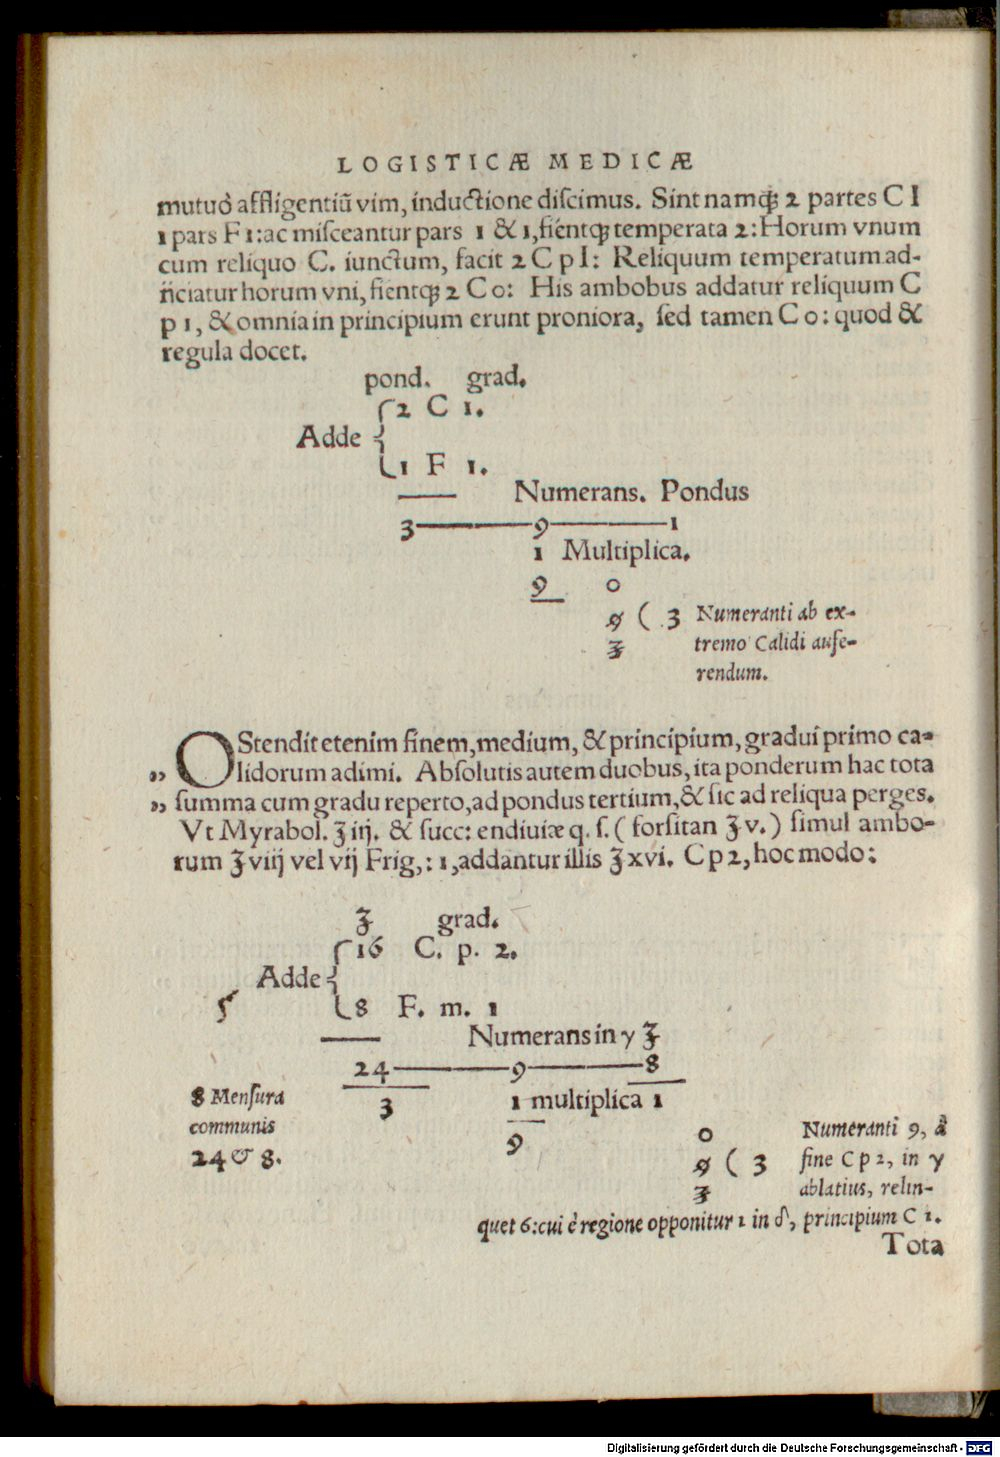 LOGISTICÆ MEDICÆ
mutuò affligentiũ vim, inductione discimus. Sint namq́ꝫ 2 partes C I
1 pars F 1: ac misceantur pars 1 & 1, fientq́ꝫ temperata 2: Horum vnum
cum reliquo C. iunctum, facit 2 C p I: Reliquum temperatum ad-
ñciatur horum vni, fientq́ꝫ 2 C o: His ambobus addatur reliquum C
p 1, & omnia in principium erunt proniora, sed tamen C o: quod &
regula docet.
pond. grad.
2 C 1.
Adde {
1 F 1.
Numerans. Pondus
3————9————1
1 Multiplica.
9 0
9 ( 3 Numeranti ab ex-
3 tremo Calidi aufe-
rendum.
OStendit etenim finem, medium, & principium, gradui primo ca-
„ lidorum adimi. Absolutis autem duobus, ita ponderum hac tota
„ summa cum gradu reperto, ad pondus tertium, & sic ad reliqua perges.
Vt Myrabol. ℥ iij. & succ: endiuiæ q. s. ( forsitan ℥ v. ) simul ambo-
rum ℥ viij vel vij Frig,: 1, addantur illis ℥ xvi. C p 2, hoc modo:
℥ grad.
16 C. p. 2.
Adde {
8 F. m. 1
Numerans in γ ℥
24————9————8
8 Mensura 3 1 multiplica 1
communis 9 0 Numeranti 9, à
24 & 8. 9 ( 3 fine C p 2, in γ
3 ablatius, relin-
quet 6: cui è regione opponitur 1 in δ, principium C 1.
Tota
Digitalisierung gefördert durch die Deutsche Forschungsgemeinschaft - DFG